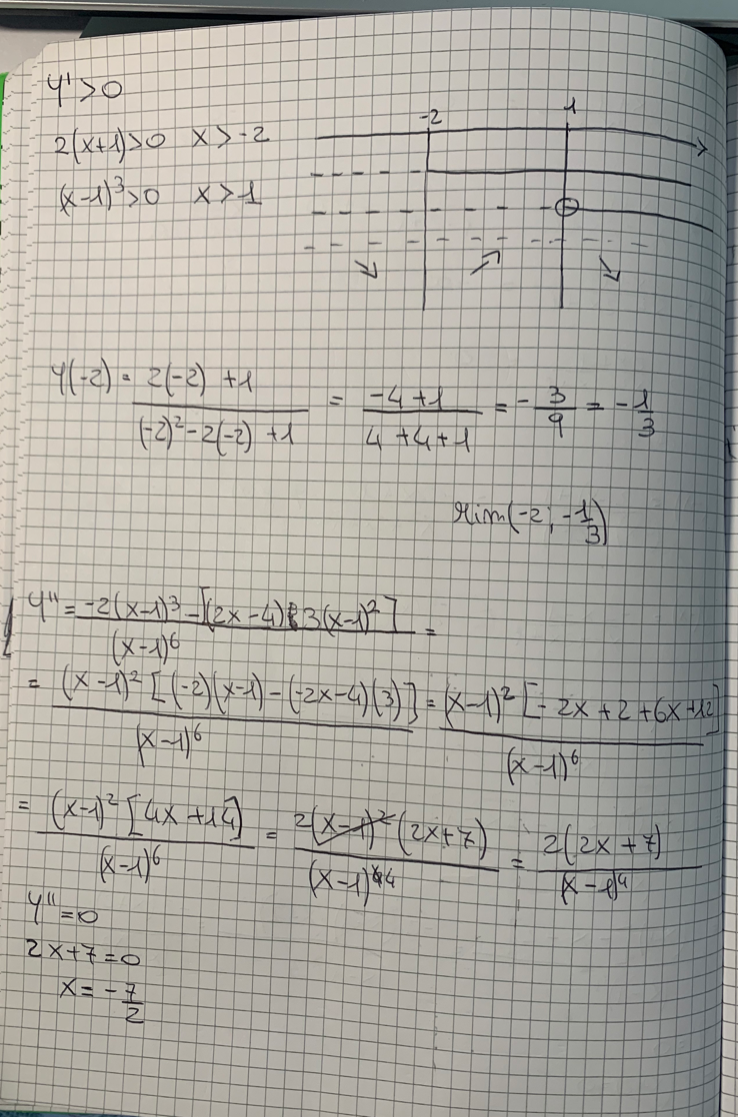 y' > 0
-2 1
2(x+1)>0 x>-2
(x-1)³>0 x>1
y(-2) = (2(-2) +1)/((-2)²-2(-2) +1) = (-4+1)/(4+4+1) = -3/9 = -1/3
min(-2; -1/3)
y'' = (-2(x-1)³-[(2x-4) 3(x-1)²])/((x-1)⁶) =
= ((x-1)² [(-2)(x-1)-(-2x-4)(3)])/((x-1)⁶) = ((x-1)² [-2x+2+6x+12])/((x-1)⁶)
= ((x-1)² [4x+14])/((x-1)⁶) = (2(x-1)² (2x+7))/((x-1)⁴) = (2(2x+7))/((x-1)⁴)
y''=0
2x+7=0
x = -7/2